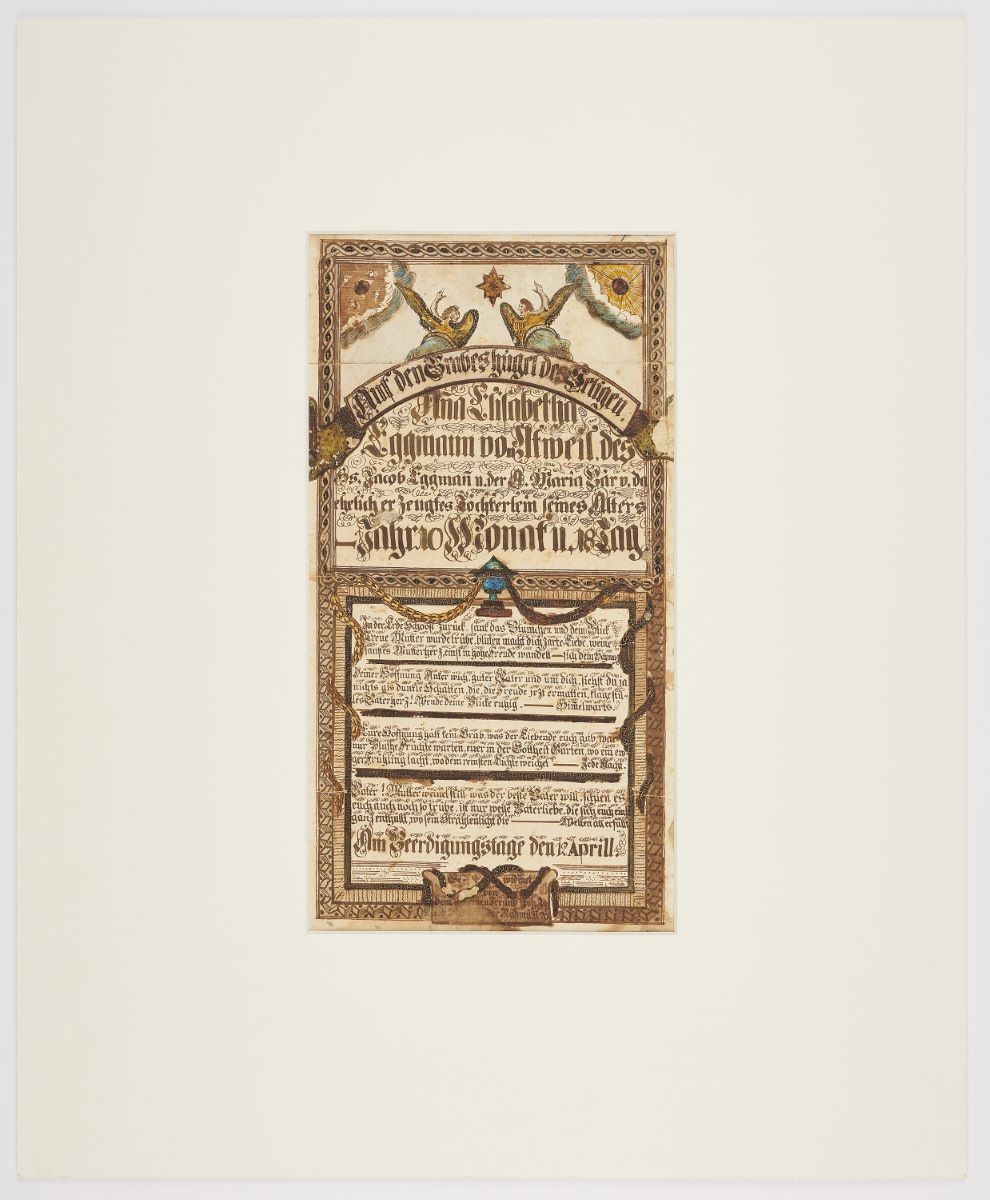 Auf den Grabeshügel des Seligen.
Ana Elisabetha
Eggmann von Utweil. des
Hs. Jacob Eggman̄ u. der A. Maria Bär v. da
ehelich erzeugtes Töchterlein seines Alters
— Jahr. 10 Monat u. 18 Tag.
In der Erde Schooß zurück, sank das Blümchen und dem Blick
treue Mutter wurde trübe, bluten macht dich zarte Liebe, weine
sanftes Mutterherz, einst in hohe Freude wandelt — sich dein
Deiner Hofnung Anker wich, guter Vater und um dich, siehst du ja
nichts als dunkle Schatten, die, die Freude jezt ermatten, klage stil-
les Vaterherz! Wende deine Blicke ruhig. — Himelwarts.
Eure Hofnung hält kein Grab, was der Liebende euch gab, war
nur Blüthe, Früchte warten, euer in der Gottheit Garten, wo ein ew
ger Frühling lacht, wo dem reinsten Lichte weichet — Jede Nacht.
Vater! Mutter weinet still, was der beste Vater will, schien es
euch auch noch so trübe, ist nur weise Vaterliebe, die sich euch einst
ganz enthüllt, wo sein Strahlenlicht die — Welten all erfüllt
Am Beerdigungstage den 12 Aprill
widmet
von
Freund Joh.